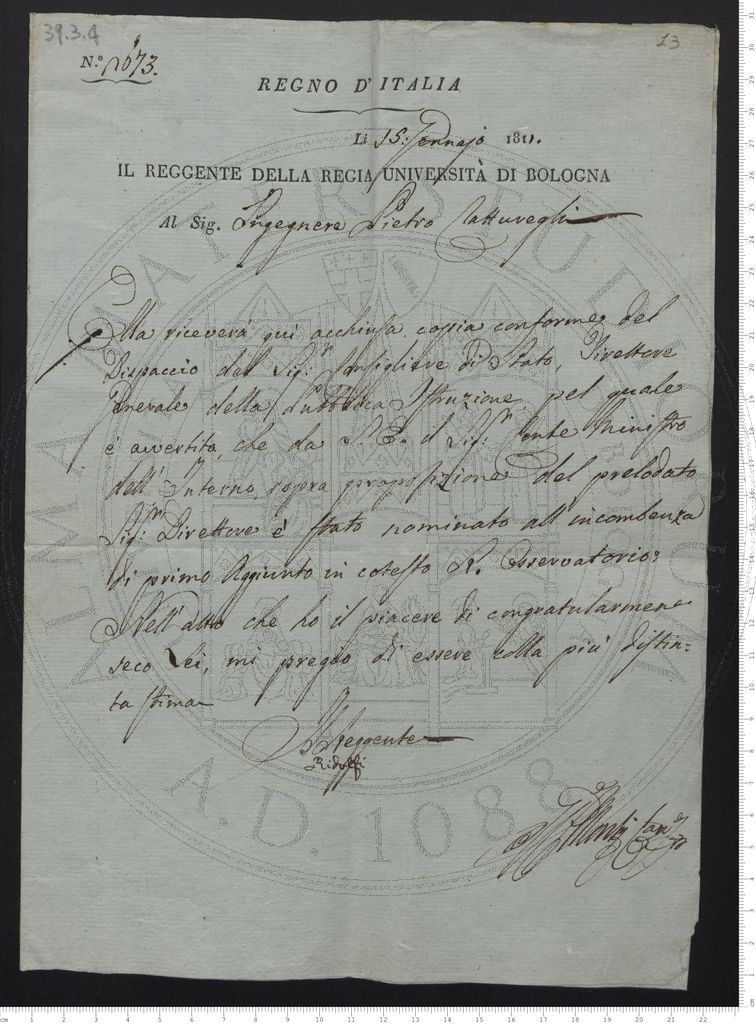 39.3.4
23
N.º 1673.
REGNO D'ITALIA
Li 15. Gennajo 1811.
IL REGGENTE DELLA REGIA UNIVERSITÀ DI BOLOGNA
Al Sig. Ingegnere Pietro Catturegli
Ella riceverà quì acchiusa copia conforme del
Dispaccio del Sig.r Consigliere di Stato, Direttore
Generale della Pubblica Istruzione, pel quale
è avvertita, che da S. E. il Sig.r Conte Ministro
dell'Interno, sopra proposizione del prelodato
Sig.r Direttore è stato nominato all'incombenza
di primo Aggiunto in cotesto R. Osservatorio;
Nell'atto che ho il piacere di congratularmene
seco Lei, mi pregio di essere colla più distin=
ta stima
Il Reggente
Ridolfi
ALMA MATER STUDIORUM
A.D. 1088